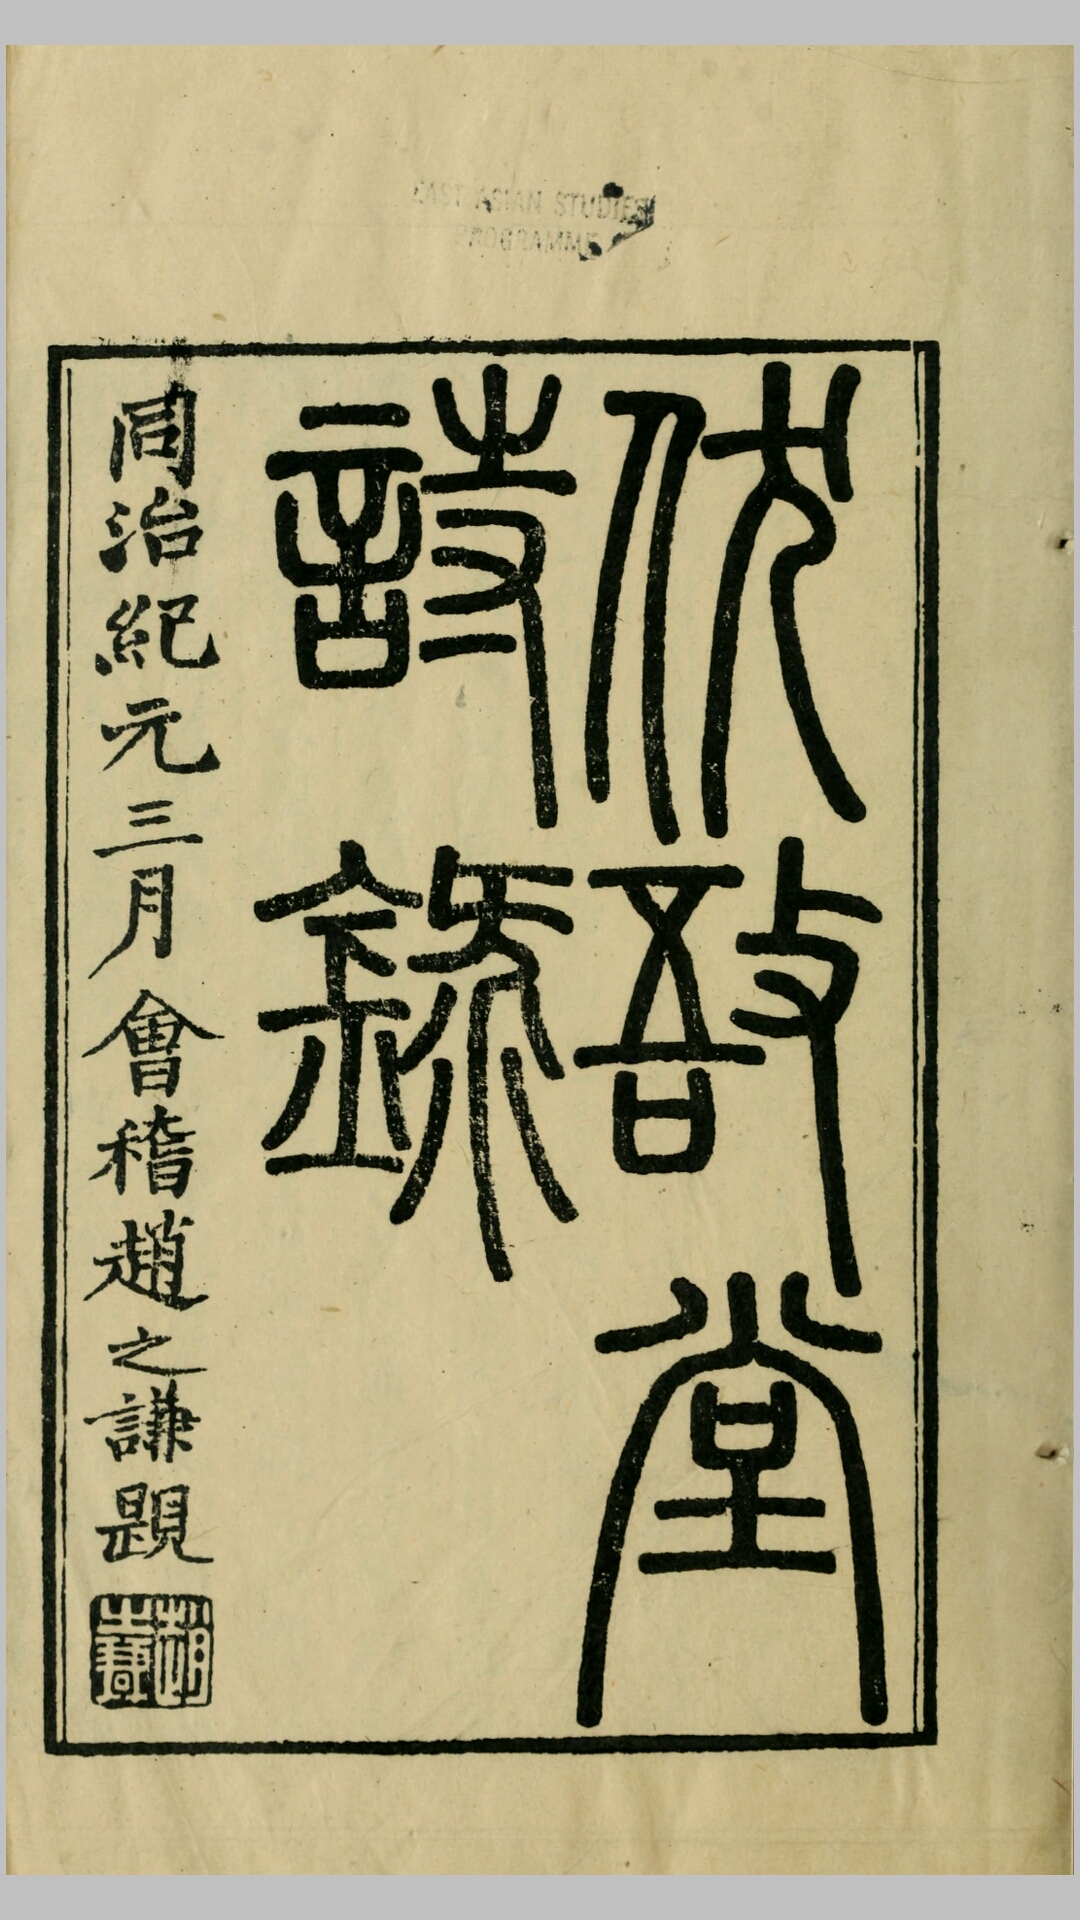 EAST ASIAN STUDIES
PROGRAMME
伏敔堂
詩錄
同治紀元三月會稽趙之謙題